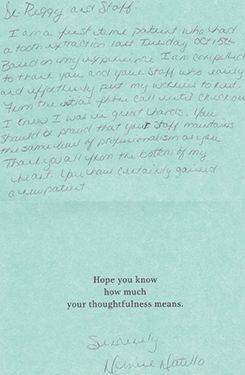 Dr Peggy and Staff.
I am a first time patient who had
a tooth extraction last Tuesday Oct 15th.
Based on my experience I am compelled
to thank you and your staff who easily
and effortlessly put my worries to rest.
From the initial phone call until checkout
I knew I was in great hands. You
should be proud that your staff maintains
the same level of professionalism as you.
Thank you all from the bottom of my
heart. You have certainly gained
a new patient
Hope you know
how much
your thoughtfulness means.
Sincerely
Natello